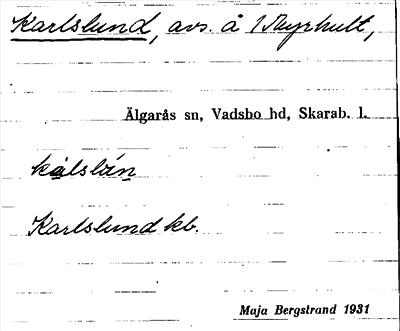 Karlslund, avs. å 1 Myrhult,
Älgarås sn, Vadsbo hd, Skarab. l.
kálslún
Karlslund kb.
Maja Bergstrand 1931